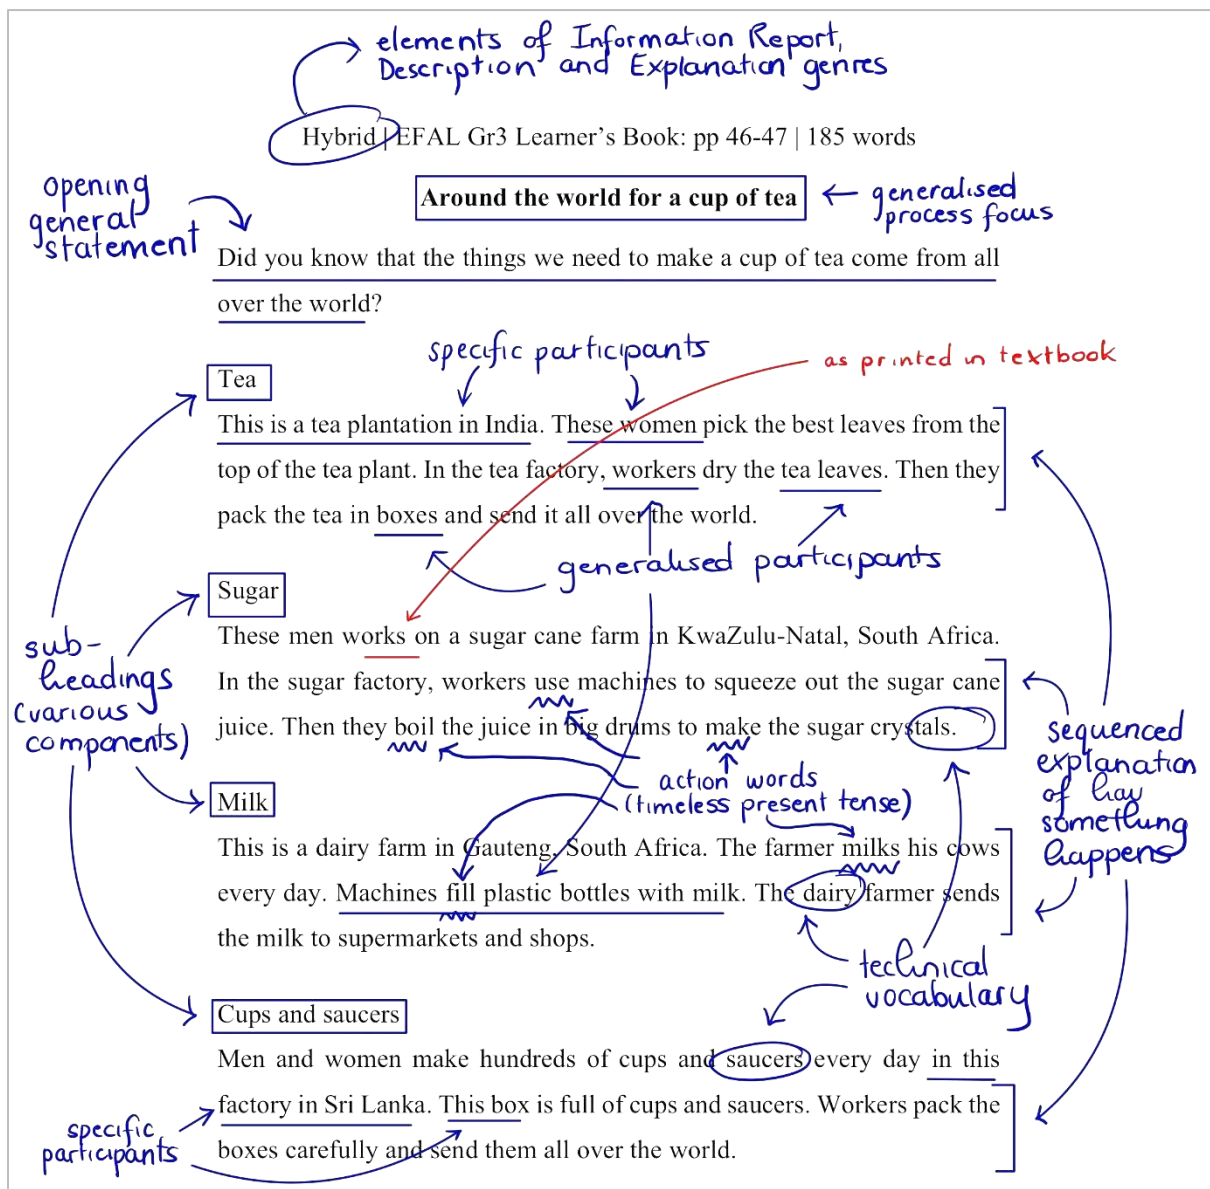 elements of Information Report,
Description and Explanation genres
Hybrid | EFAL Gr3 Learner's Book: pp 46-47 | 185 words
opening
general
statement
Around the world for a cup of tea
generalised
process focus
Did you know that the things we need to make a cup of tea come from all
over the world?
specific participants
as printed in textbook
Tea
This is a tea plantation in India. These women pick the best leaves from the
top of the tea plant. In the tea factory, workers dry the tea leaves. Then they
pack the tea in boxes and send it all over the world.
generalised participants
Sugar
These men works on a sugar cane farm in KwaZulu-Natal, South Africa.
In the sugar factory, workers use machines to squeeze out the sugar cane
juice. Then they boil the juice in big drums to make the sugar crystals.
sub-
headings
(various
components)
action words
(timeless present tense)
sequenced
explanation
of how
something
happens
Milk
This is a dairy farm in Gauteng, South Africa. The farmer milks his cows
every day. Machines fill plastic bottles with milk. The dairy farmer sends
the milk to supermarkets and shops.
technical
vocabulary
Cups and saucers
Men and women make hundreds of cups and saucers every day in this
factory in Sri Lanka. This box is full of cups and saucers. Workers pack the
boxes carefully and send them all over the world.
specific
participants